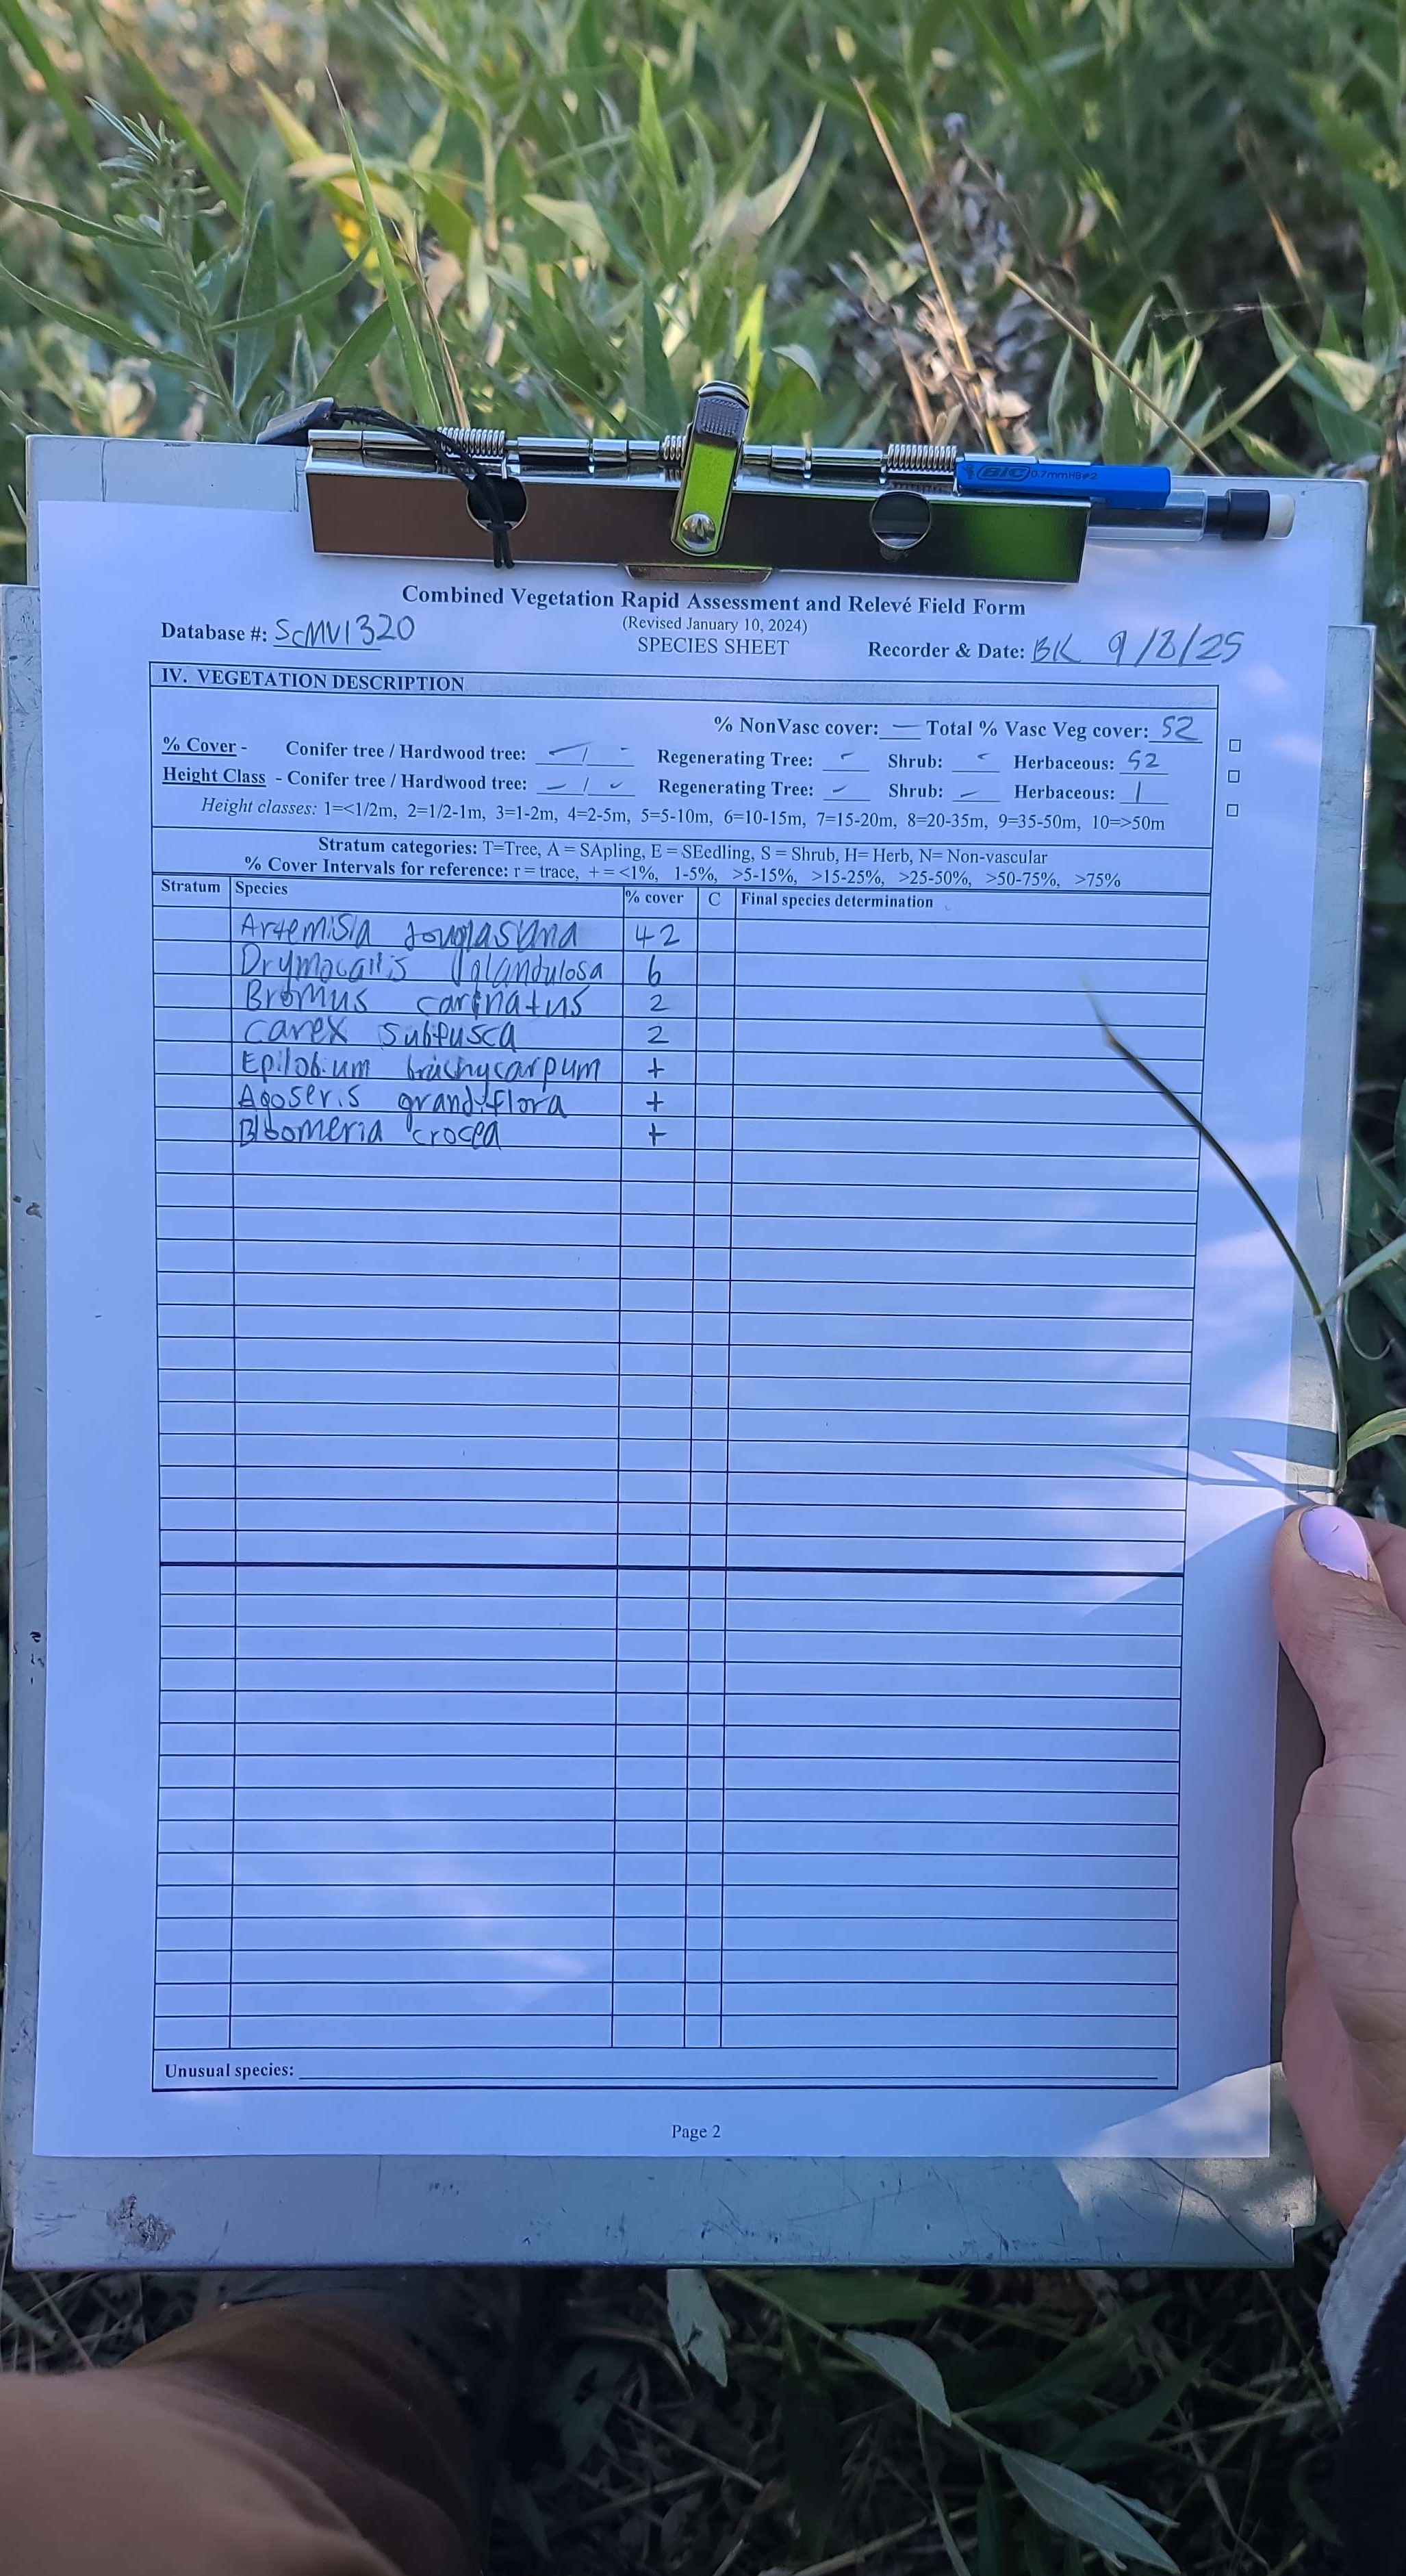 BIC 0.7mm HB #2
Combined Vegetation Rapid Assessment and Relevé Field Form
(Revised January 10, 2024)
Database #: ScMV1320
SPECIES SHEET
Recorder & Date: BK 9/8/25
IV. VEGETATION DESCRIPTION
% NonVasc cover: — Total % Vasc Veg cover: 52
% Cover - Conifer tree / Hardwood tree: — / - Regenerating Tree: - Shrub: - Herbaceous: 52
Height Class - Conifer tree / Hardwood tree: — / - Regenerating Tree: - Shrub: — Herbaceous: 1
Height classes: 1=<1/2m, 2=1/2-1m, 3=1-2m, 4=2-5m, 5=5-10m, 6=10-15m, 7=15-20m, 8=20-35m, 9=35-50m, 10=>50m
Stratum categories: T=Tree, A = SApling, E = SEedling, S = Shrub, H= Herb, N= Non-vascular
% Cover Intervals for reference: r = trace, + = <1%, 1-5%, >5-15%, >15-25%, >25-50%, >50-75%, >75%
Stratum Species % cover C Final species determination
Artemisia douglasiana 42
Drymocallis glandulosa 6
Bromus carinatus 2
Carex subfusca 2
Epilobium brachycarpum +
Agoseris grandiflora +
Bloomeria crocea +
Unusual species:
Page 2